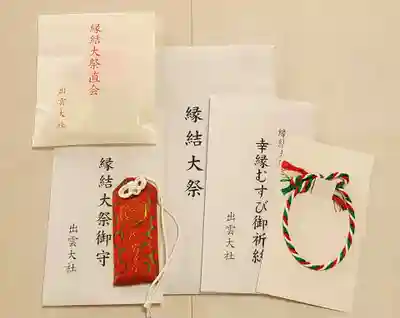 縁結大祭直会
出雲大社
縁結大祭御守
出雲大社
縁結大祭
縁結大祭
幸縁むすび御祈絲
出雲大社